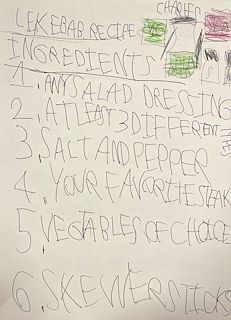 CHARLES
LEKEBAB RECIPE
INGREDIENTS
1. ANY SALAD DRESSING
2. ATLEAST 3 DIFFERENT
3. SALT AND PEPPER
4. YOUR FAVORITE STEAK
5. VEGTABLES OF CHOICE
6. SKEWER STICKS